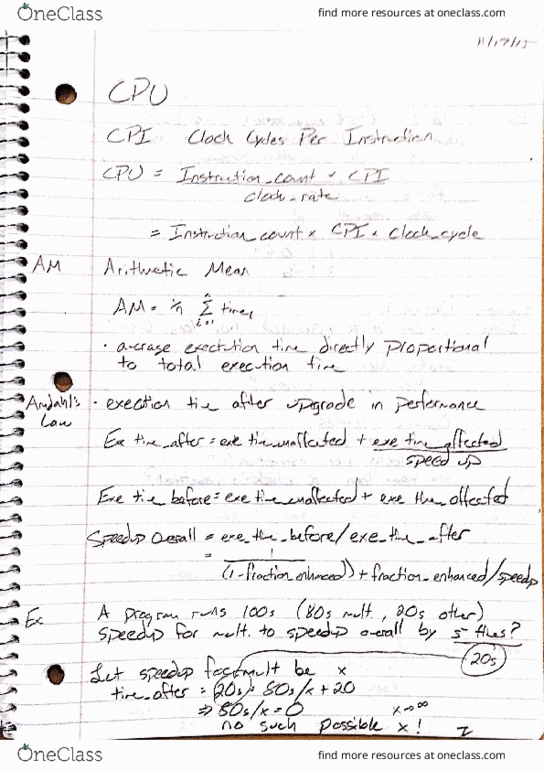 OneClass
find more resources at oneclass.com
11/17/15
CPU
CPI Clock Cycles Per Instruction
CPU = Instruction_count × CPI
clock_rate
= Instruction_count × CPI × Clock_cycle
AM Arithmetic Mean
AM = 1/n Σ timei
n
i=1
• average exectution time directly proportional
to total execution time
Amdahl's Law • exection time after upgrade in performance
Exe time_after = exe time unaffected + exe time affected
speed up
Exe time before = exe time unaffected + exe time affected
Speedup Overall = exe_time_before/exe_time_after
= 1
(1-fraction_enhanced) + fraction_enhanced/speedup
Ex A program runs 100s (80s mult., 20s other)
speedup for mult. to speedup overall by 5 times?
20s
Let speedup for mult be x
time_after = 20s = 80s/x + 20
⇒ 80s/x = 0 x→∞
no such possible x!
2
OneClass
find more resources at oneclass.com